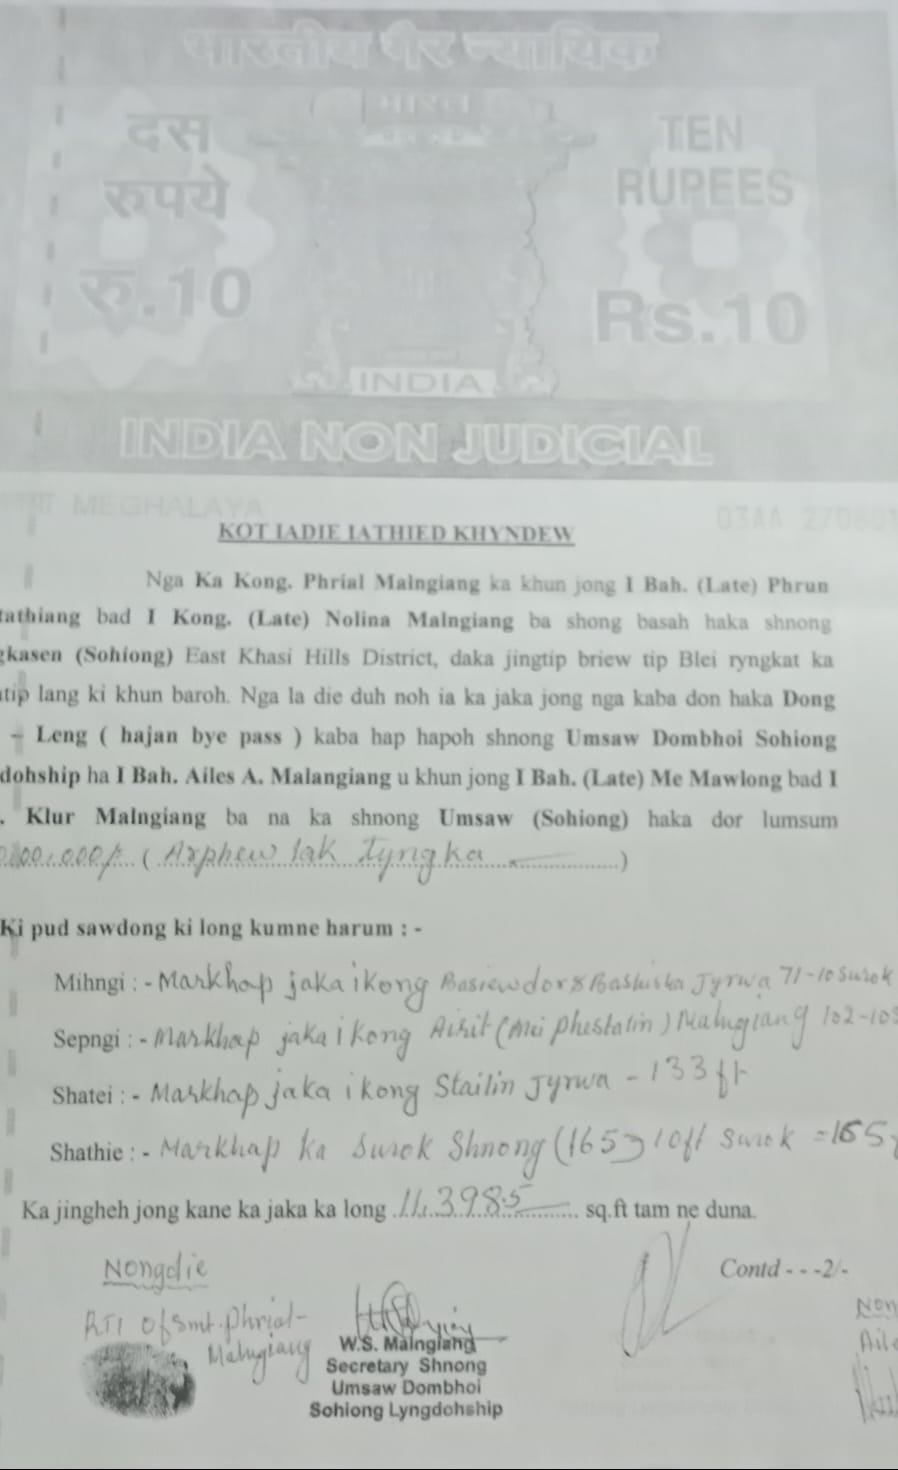 भारतीय गैर न्यायिक
भारत
दस
रुपये
रु.10
TEN
RUPEES
Rs.10
INDIA
INDIA NON JUDICIAL
MEGHALAYA
03AA
KOT IADIE IATHIED KHYNDEW
Nga Ka Kong. Phrial Malngiang ka khun jong I Bah. (Late) Phrun
tathiang bad I Kong. (Late) Nolina Malngiang ba shong basah haka shnong
gkasen (Sohiong) East Khasi Hills District, daka jingtip briew tip Blei ryngkat ka
tip lang ki khun baroh. Nga la die duh noh ia ka jaka jong nga kaba don haka Dong
– Leng ( hajan bye pass ) kaba hap hapoh shnong Umsaw Dombhoi Sohiong
dohship ha I Bah. Ailes A. Malangiang u khun jong I Bah. (Late) Me Mawlong bad I
. Klur Malngiang ba na ka shnong Umsaw (Sohiong) haka dor lumsum
00,000/- ( Arphew lak tyngka )
Ki pud sawdong ki long kumne harum : -
Mihngi : - Markhap jaka i kong Jyrwa 71-10 Surok
Sepngi : - Markhap jaka i kong Airit Malngiang 102-10
Shatei : - Markhap jaka i kong Stailin Jyrwa - 133 ft
Shathie : - Markhap ka Surok Shnong (165 10ft Surok = 165
Ka jingheh jong kane ka jaka ka long 11,398.5 sq.ft tam ne duna.
Contd - - -2/-
Nongdie
RTI of Smt. Phrial
Malngiang
W.S. Malngiang
Secretary Shnong
Umsaw Dombhoi
Sohiong Lyngdohship
Non
Ail